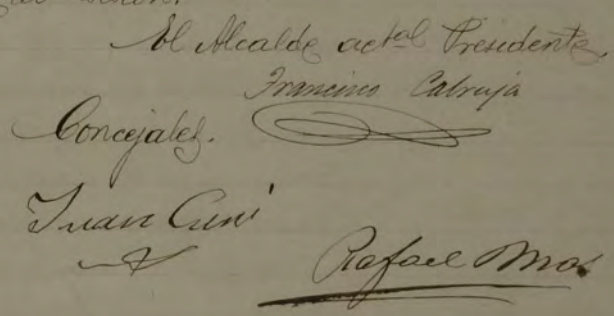 El Alcalde actal Presidente
Francisco Cabruja
Concejales.
Juan Cuní
Rafael Mas